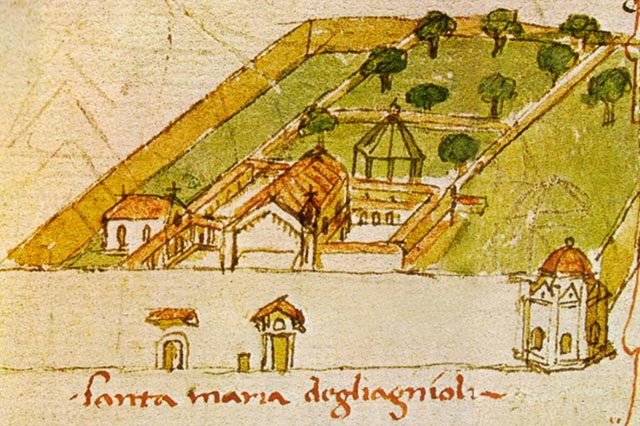 ·santa maria degliagnioli~